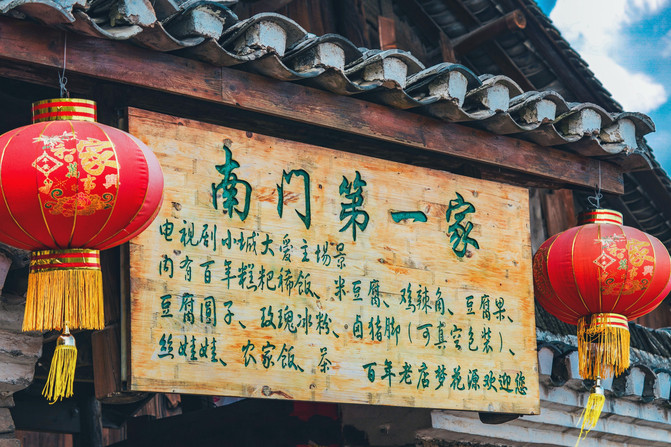 南门第一家
电视剧小城大爱主场景
内有百年糕粑稀饭、米豆腐、鸡辣角、豆腐果、
豆腐圆子、玫瑰冰粉、卤猪脚（可真空包装）、
丝娃娃、农家饭、茶
百年老店梦花源欢迎您